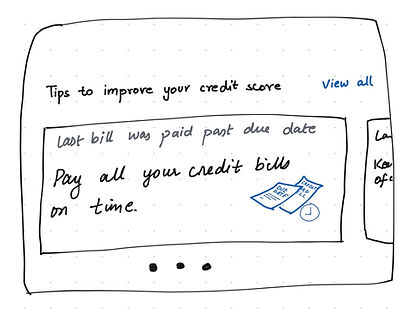 Tips to improve your credit score
View all
Last bill was paid past due date
Pay all your credit bills
on time.
DUE
DATE
CREDIT
La
Kee
of c